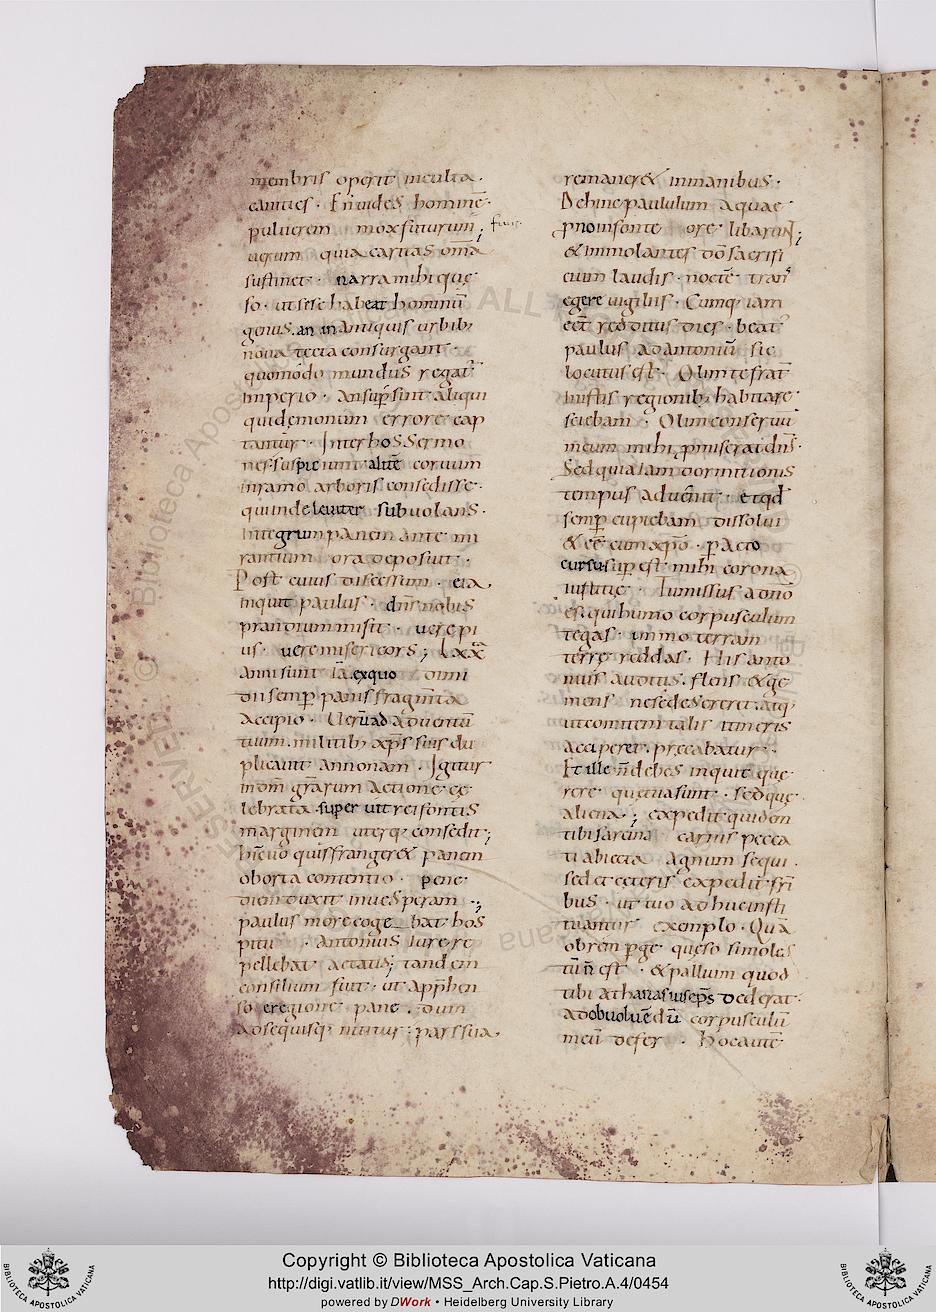 membris operit inculta·
canities · En uides homine᷒·
puluerem mox futurum;
uerum quia caritas om̄a
sustinet · narra mihi quę
so · ut sese habeat hominū
genus · an in antiquis urbib;
noua tecta consurgant ·
quomodo mundus regat᷒
imperio · An sup̄sint aliqui
qui demonum errore cap
tantur · Inter hos sermo
nes suspiciunt alitē coruum
in ramo arboris consedisse·
qui inde leuiter subuolans·
Integrum panem ante mi
rantium ora deposuit ·
Post cuius discessum · eia
inquit paulus · dn̄s nobis
prandium misit · uere pi
us · uere misericors ; Lxx
anni sunt iā exquo dimi
dii semp̄ panis fragm̄ta
accipio · Uerū ad aduentū
tuum · militib; xp̄s suis du
plicauit annonam · Igitur
in dn̄m gr̄arum actione ce
lebrata super uitrei fontis
marginem uterq; consedit;
hic uero quis frangeret panem
oborta contentio · pene
diem duxit in uesperam ·;
paulus more coge bat hos
pitii · Antonius iure re
pellebat aetatis; tandem
consilium fuit · ut app̄hen
so e regione pane · dum
ad se quisq; nititur ; pars sua
remaneret in manibus ·
Dehinc paululum aquae
prono in fonte ore libarun̄;
& immolantes dō sacrifi
cium laudis · noctē trans
egere uigiliis · Cumq; iam
eēt redditus dies · beat᷒
paulus ad antoniū sic
locutus est · Olim te frat̄
in istis regionib; habitare·
sciebam · Olim conseruū
meum mihi p̱miserat dn̄s·
Sed quia iam dormitionis
tempus aduenit · et qd̄
semp̄ cupiebam dissolui
& eē cum xp̄o · pacto
cursu sup̱est mihi corona
iustitię · Tu missus a dn̄o
es · qui humo corpusculum
tegas · immo terram
terrę reddas · His anto
nius auditis · flens & ge
mens ne se desereret · atq;
ut comitem talis itineris
acciperet · precabatur ·
Et ille n̄ debes inquit quę
rere quę tua sunt · sed quę
aliena ·; expedit quidem
tibi sarcina carnis pecca
ti abiecta agnum sequi ·
sed et ceteris expedit fr̄i
bus · ut tuo adhuc insti
tuantur exemplo · Quā
obrem perge quęso si moles
tū n̄ est · & pallium quod
tibi athanasius ep̄s dederat·
ad obuoluendū corpusculū
meū defer · Hoc autē
Copyright © Biblioteca Apostolica Vaticana
http://digi.vatlib.it/view/MSS_Arch.Cap.S.Pietro.A.4/0454
powered by DWork • Heidelberg University Library